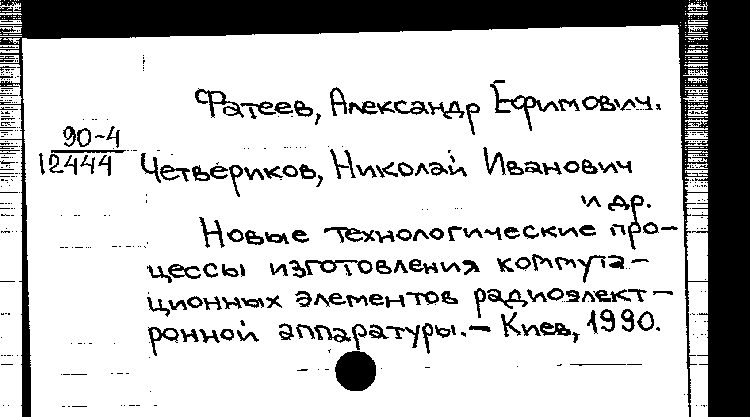 Фатеев, Александр Ефимович.
90-4
12444
Четвериков, Николай Иванович
и др.
Новые технологические про-
цессы изготовления коммута-
ционных элементов радиоэлект-
ронной аппаратуры.- Киев, 1990.